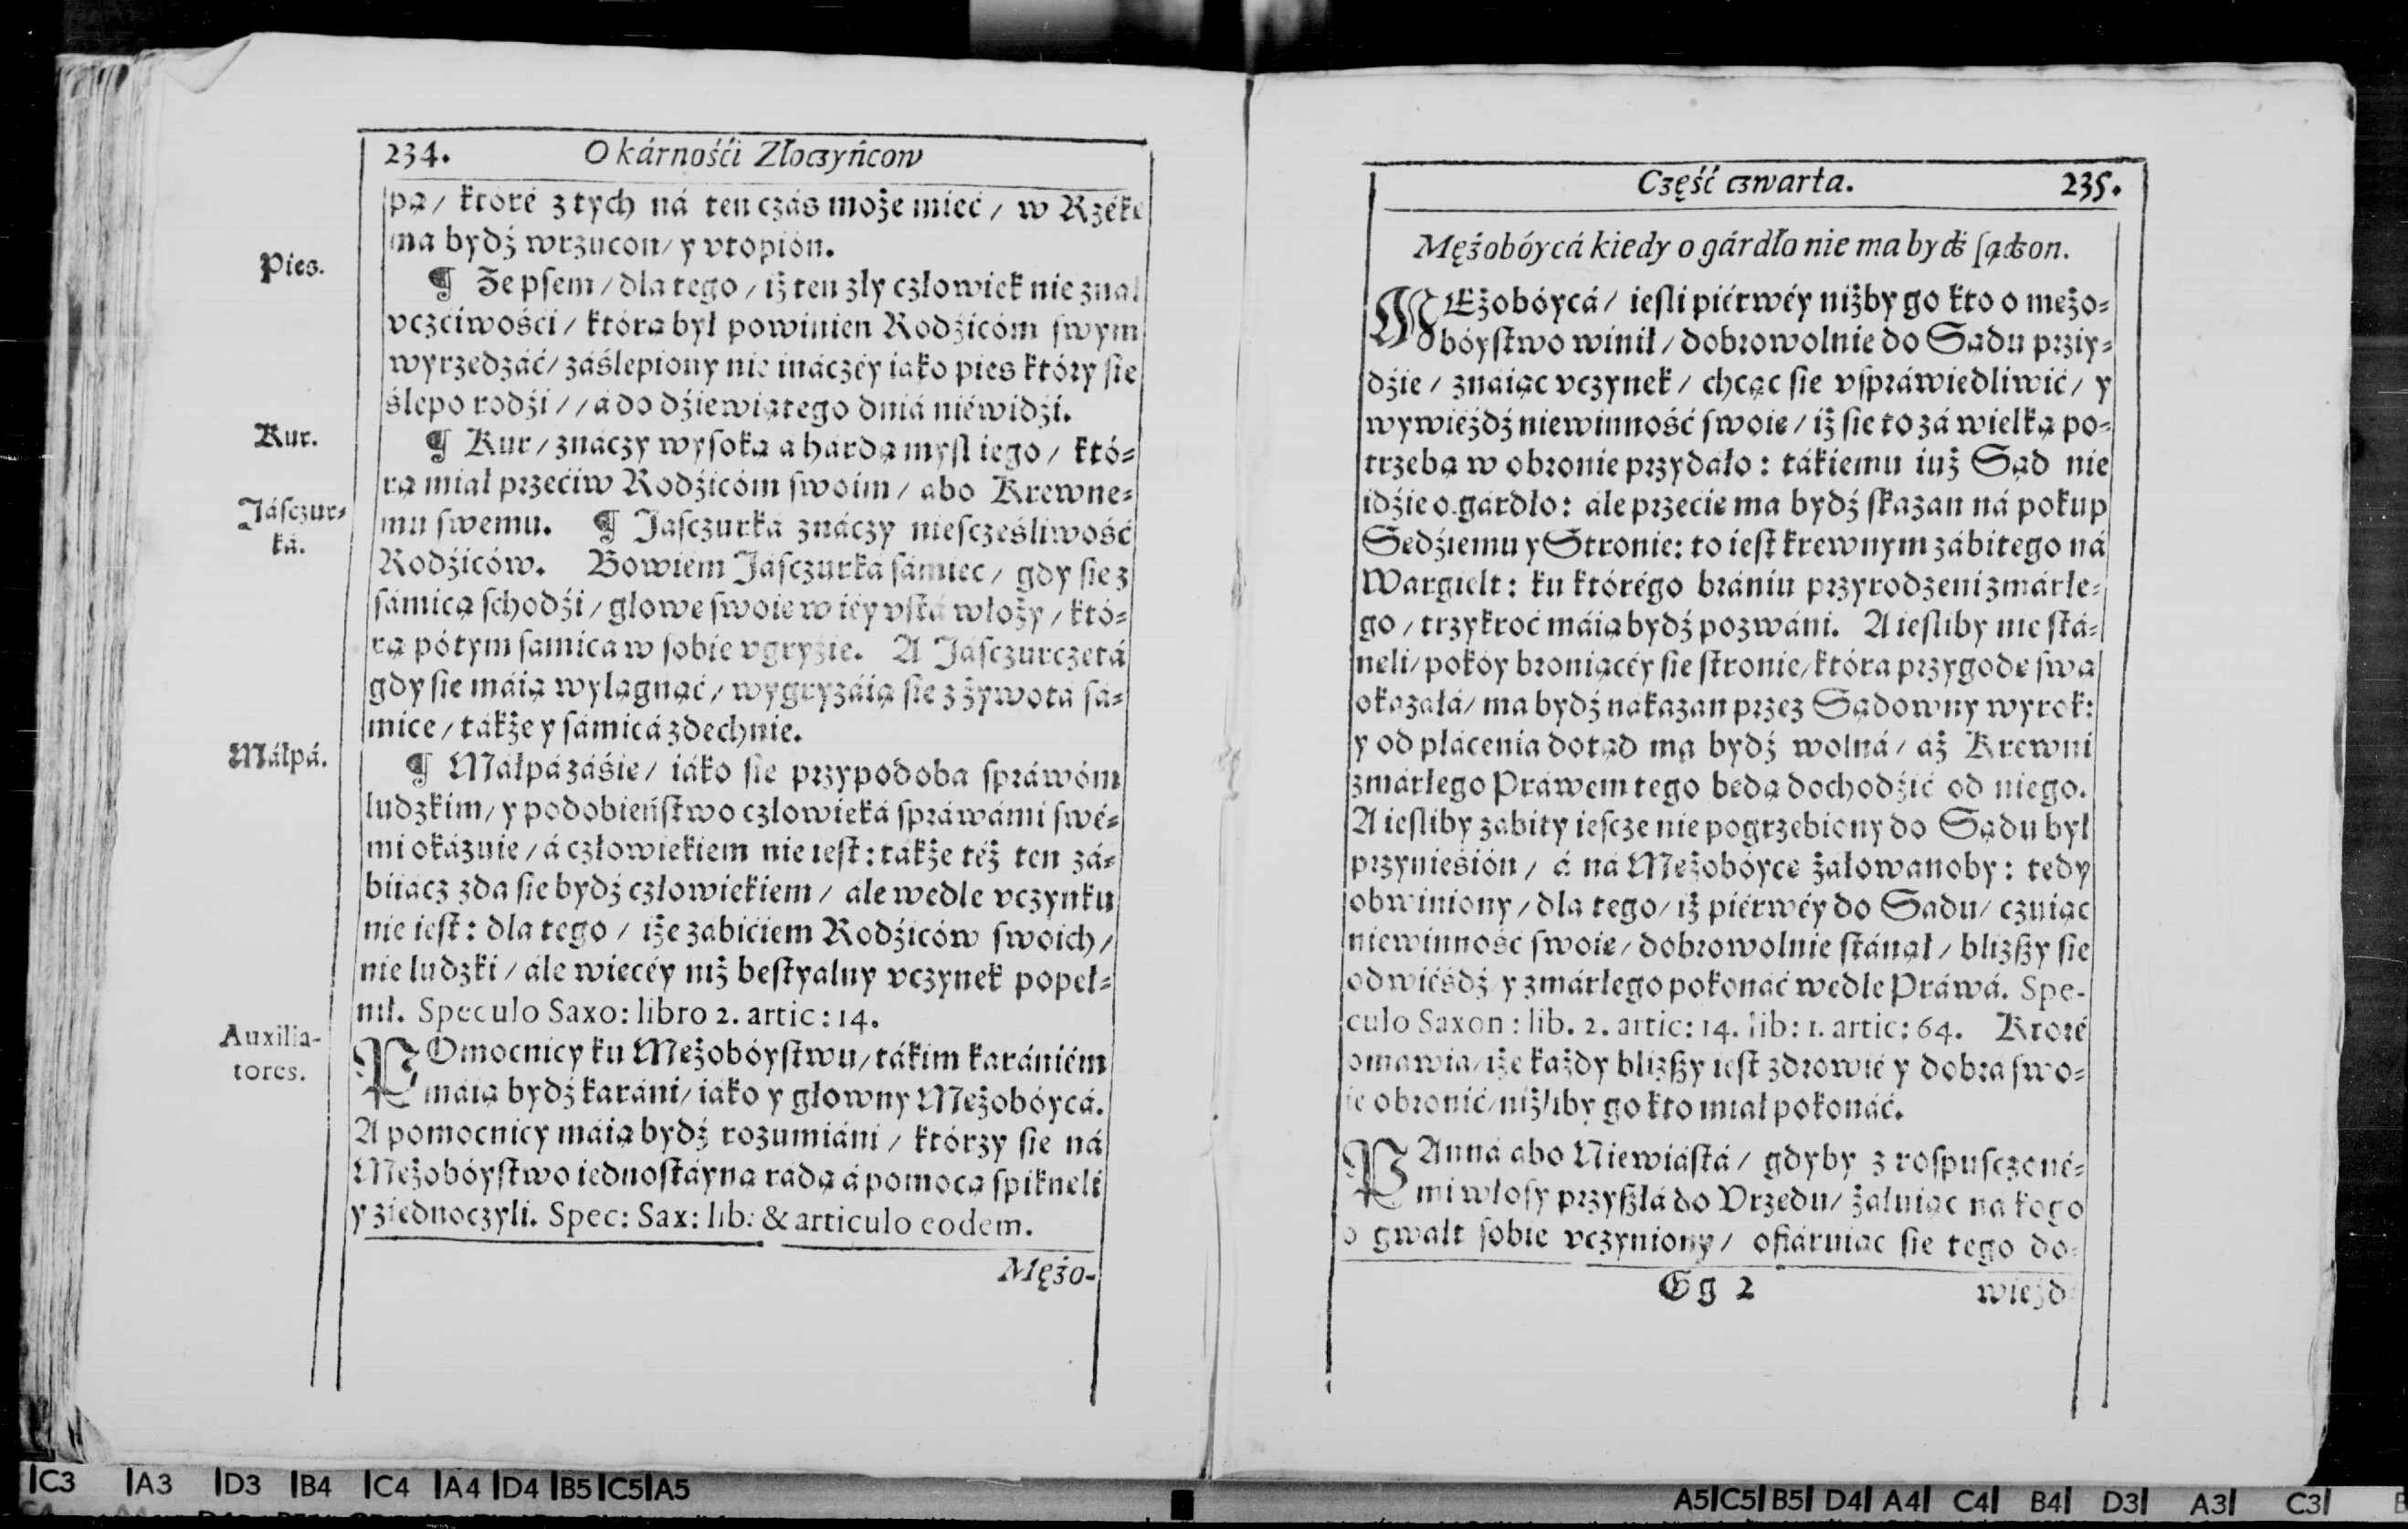 234. O kárnośći Złoczyńcow
pą / któré z tych ná ten czás może mieć / w Rzékę
ma bydź wrzucon / y vtopión.
Pies.
¶ Ze psem / dla tego / iż ten zły człowiek nie znał
vczćiwośći / którą był powinien Rodźicóm swym
wyrzedzáć / záślepiony nie ináczéy iako pies który sie
ślepo rodźi / / á do dźiewiątego dniá niéwidźi.
Kur.
¶ Kur / znáczy wysoką a hardą mysl iego / któ-
rą miał przećiw Rodźicóm swoim / abo Krewne-
Jáſczur-
ká.
mu swemu. ¶ Jaſczurká znáczy nieſczęśliwość
Rodźiców. Bowiem Jáſczurká sámiec / gdy sie z
sámicą schodźi / głowę swoię w iéy vstá włoży / któ-
rą pótym samica w sobie vgryzie. A Jáſczurczętá
gdy sie máią wylągnąć / wygryzáią sie z żywotá sá-
mice / tákże y sámicá zdechnie.
Máłpá.
¶ Máłpá záśie / iáko sie przypodoba spráwóm
ludzkim / y podobieństwo człowieká spráwámi swé-
mi okázuie / á człowiekiem nie iest : tákże téż ten zá-
biiácz zda sie bydź człowiekiem / ále wedle vczynku
nie iest : dla tego / iże zábićiem Rodźiców swoich /
nie ludzki / ále więcéy niż bestyalny vczynek popeł-
nił. Speculo Saxo: libro 2. artic: 14.
Auxilia-
tores.
POmocnicy ku Mężobóystwu / tákim karániém
máią bydź karáni / iáko y głowny Mężobóycá.
A pomocnicy máią bydź rozumiáni / którzy sie ná
Mężobóystwo iednostáyną rádą á pomocą spiknęli
y ziednoczyli. Spec: Sax: lib: & articulo eodem.
Mężo-
Część czwarta. 235.
Mężobóycá kiedy o gárdło nie ma bydź ſądzon.
MĘżobóycá / iesli piérwéy niżby go kto o mężo-
bóystwo winił / dobrowolnie do Sądu przyi-
dźie / znáiąc vczynek / chcąc sie vspráwiedliwić / y
wywiéźdź niewinność swoię / iż sie to zá wielką po-
trzebą w obronie przydáło : tákiemu iuż Sąd nie
idźie o gárdło : ále przećie ma bydź skazan ná pokup
Sędźiemu y Stronie : to iest krewnym zábitego ná
Wargielt : ku którégo brániu przyrodzeni zmárłe-
go / trzykroć máią bydź pozwáni. A iesliby nie stá-
nęli / pokóy broniącéy sie stronie / która przygodę swą
okazáłá / ma bydź nakazan przez Sądowny wyrok :
y od płácenia dotąd ma bydź wolná / áż Krewni
zmárłego Práwem tego będą dochodźić od niego.
A iesliby zábity ieſcze nie pogrzebiony do Sądu był
przynieśión / á ná Mężobóycę żáłowanoby : tedy
obwiniony / dla tego / iż piérwéy do Sądu / czuiąc
niewinność swoię / dobrowolnie stánął / bliższy sie
odwiéśdź / y zmárłego pokonáć wedle Práwá. Spe-
culo Saxon : lib. 2. artic: 14. lib: 1. artic: 64. Któré
omawia / iże każdy bliższy iest zdrowié y dobra swo-
ie obronić / niżliby go kto miał pokonáć.
PAnná abo Niewiástá / gdyby z rospuſczoné-
mi włosy przyszłá do Vrzędu / żáłuiąc ná kogo
o gwałt sobie vczyniony / ofiáruiąc sie tego do-
Gg 2 wieźd-
C3 A3 D3 B4 C4 A4 D4 B5 C5 A5
A5 C5 B5 D4 A4 C4 B4 D3 A3 C3